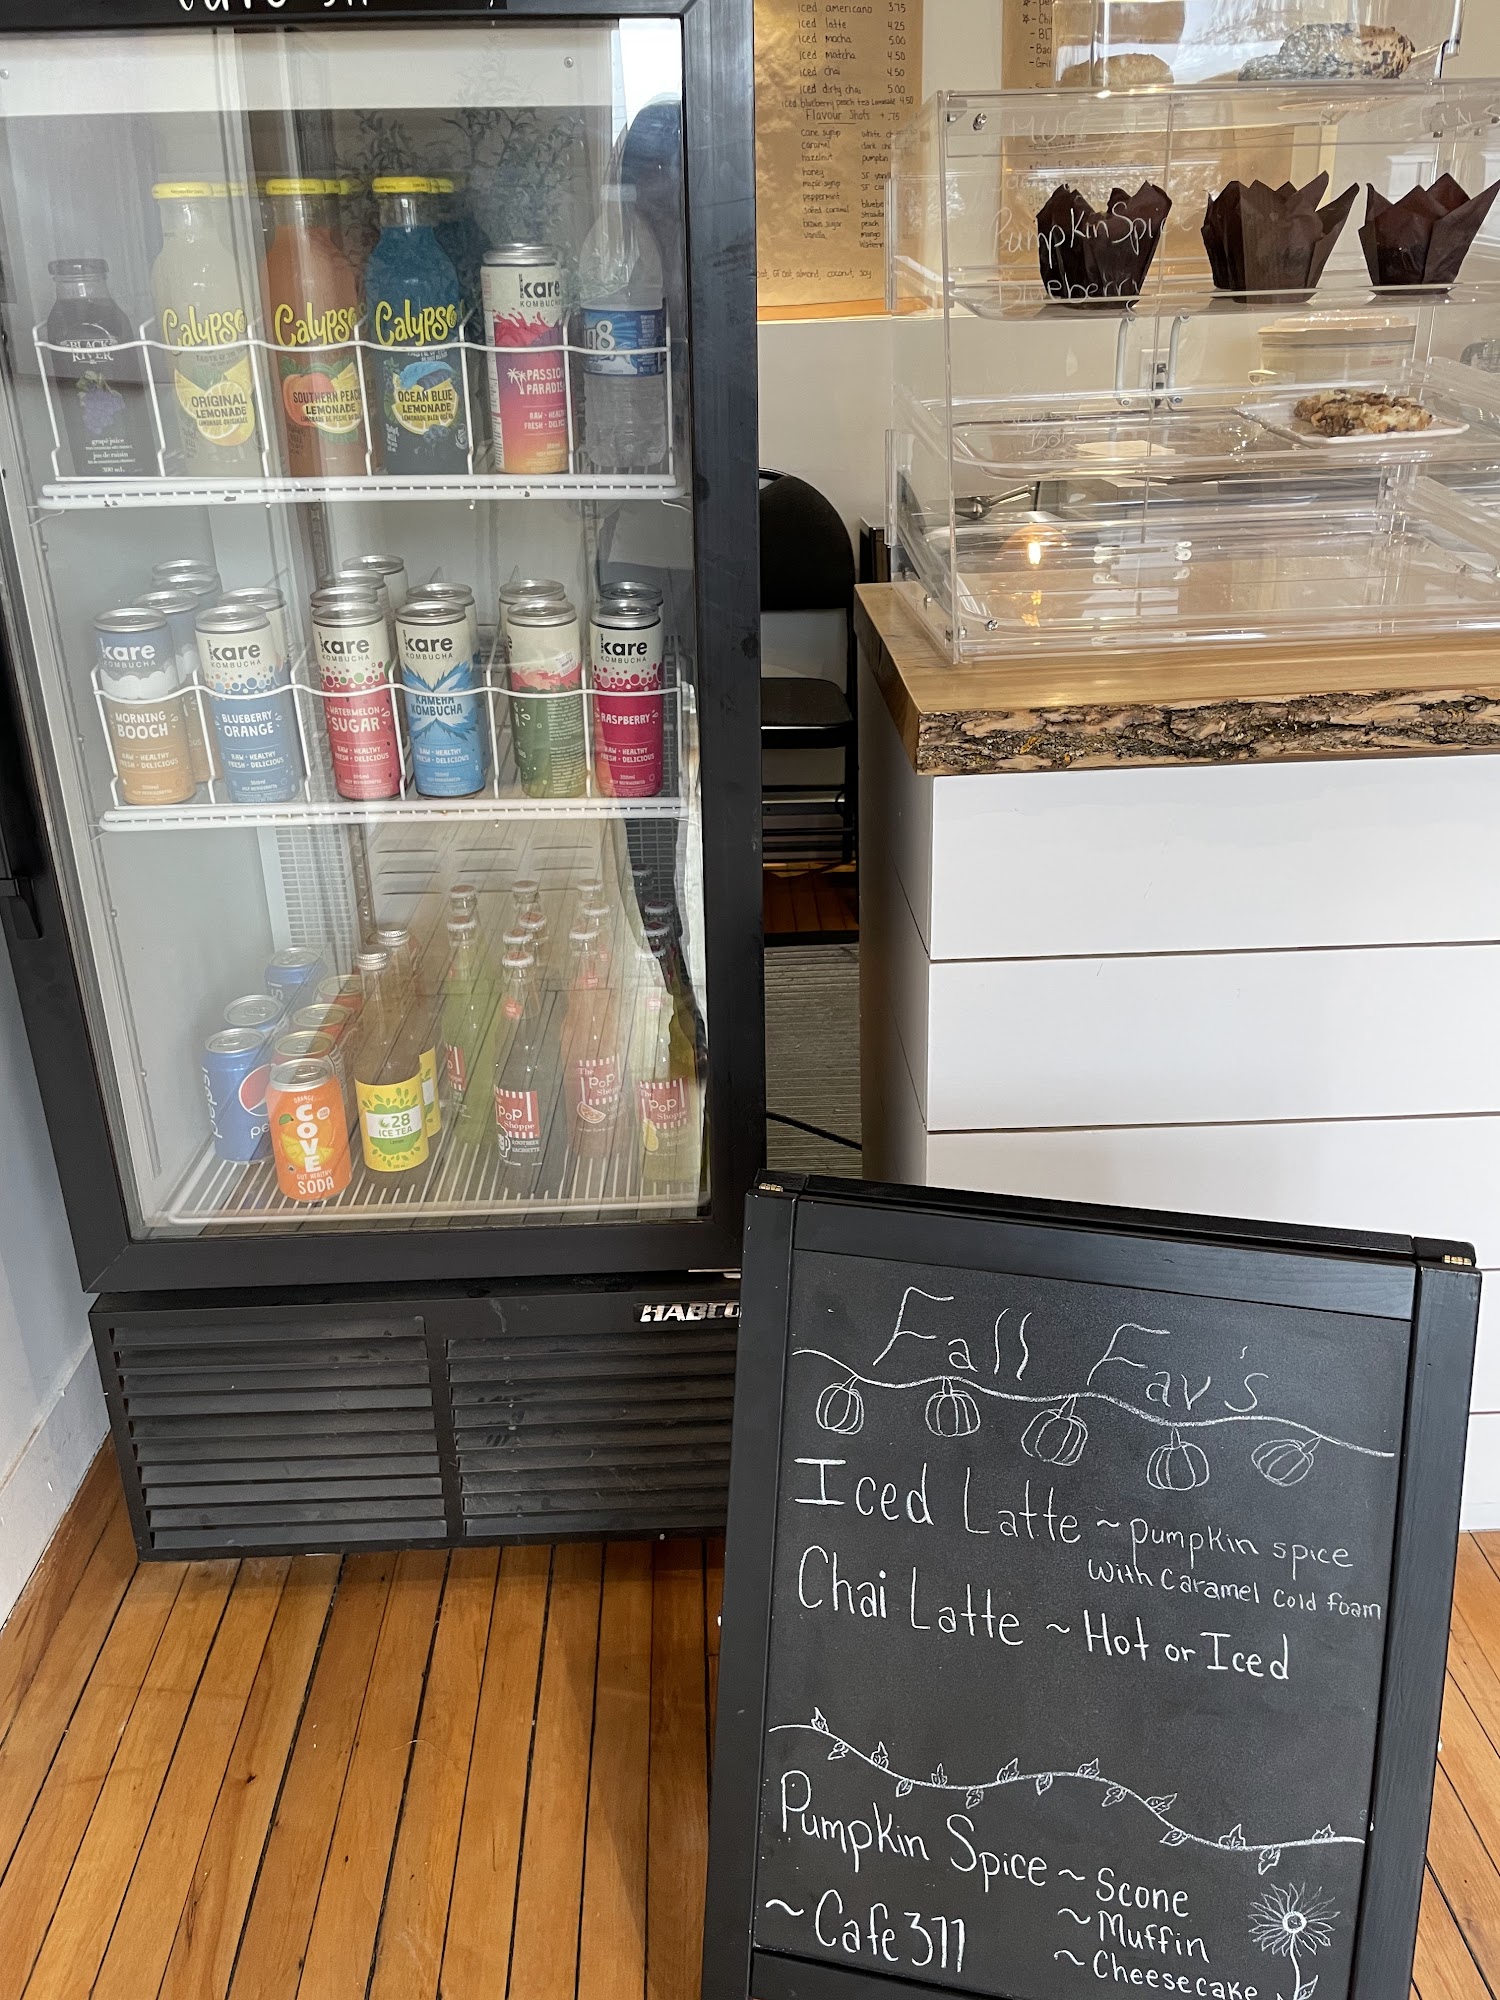 iced americano 3.75
iced latte 4.25
iced mocha 5.00
iced matcha 4.50
iced chai 4.50
iced dirty chai 5.00
iced blueberry peach tea Lemonade 4.50
Flavour Shots + .75
cane syrup
caramel
hazelnut
honey
maple syrup
peppermint
salted caramel
brown sugar
vanilla
white
dark
pumpkin
SF
SF
peach
mango
almond, coconut, soy
Pumpkin Spice
Blueberry
BLACK
RIVER
grape juice
jus de raisin
300 mL
Calypso
ORIGINAL
LEMONADE
Calypso
SOUTHERN PEACH
LEMONADE
Calypso
OCEAN BLUE
LEMONADE
kare
KOMBUCHA
PASSION
PARADISE
kare
KOMBUCHA
MORNING
BOOCH
RAW • HEALTHY
FRESH • DELICIOUS
kare
KOMBUCHA
BLUEBERRY
ORANGE
RAW • HEALTHY
FRESH • DELICIOUS
kare
KOMBUCHA
WATERMELON
SUGAR
RAW • HEALTHY
FRESH • DELICIOUS
kare
KOMBUCHA
KAMEHA
KOMBUCHA
RAW • HEALTHY
FRESH • DELICIOUS
kare
KOMBUCHA
RASPBERRY
RAW • HEALTHY
FRESH • DELICIOUS
pepsi
ORANGE
COVE
GUT HEALTHY
SODA
28
ICE TEA
The
PoP
Shoppe
ROOTBEER
The
PoP
Shoppe
The
PoP
Shoppe
HABCO
Fall Fav's
Iced Latte ~ pumpkin spice
with caramel cold foam
Chai Latte ~ Hot or Iced
Pumpkin Spice ~ Scone
~ Muffin
~ Cheesecake
~ Cafe 311